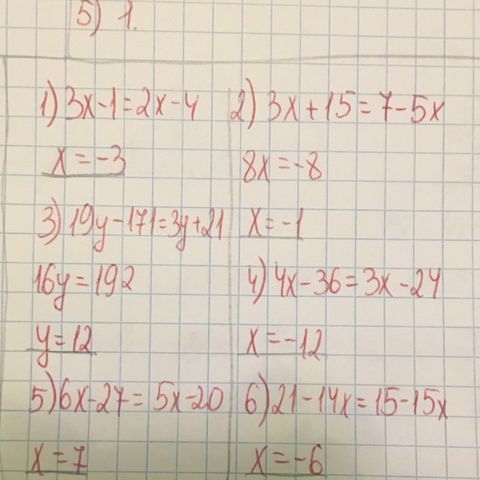 5) 1.
1) 3x-1=2x-4
x=-3
3) 19y-171=3y+21
16y=192
y=12
5) 6x-27=5x-20
x=7
2) 3x+15=7-5x
8x=-8
x=-1
4) 4x-36=3x-24
x=-12
6) 21-14x=15-15x
x=-6